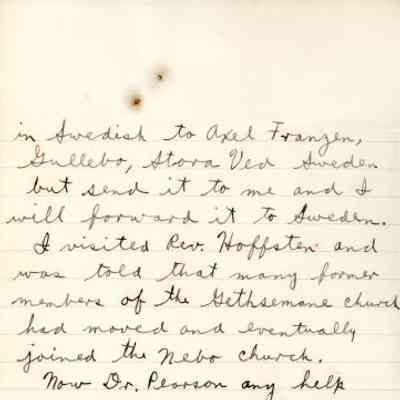 in Swedish to Axel Franzen,
Gullebo, Stora Ved Sweden
but send it to me and I
will forward it to Sweden.
I visited Rev. Hoffsten and
was told that many former
members of the Gethsemane church
had moved and eventually
joined the Nebo church.
Now Dr. Pearson any help